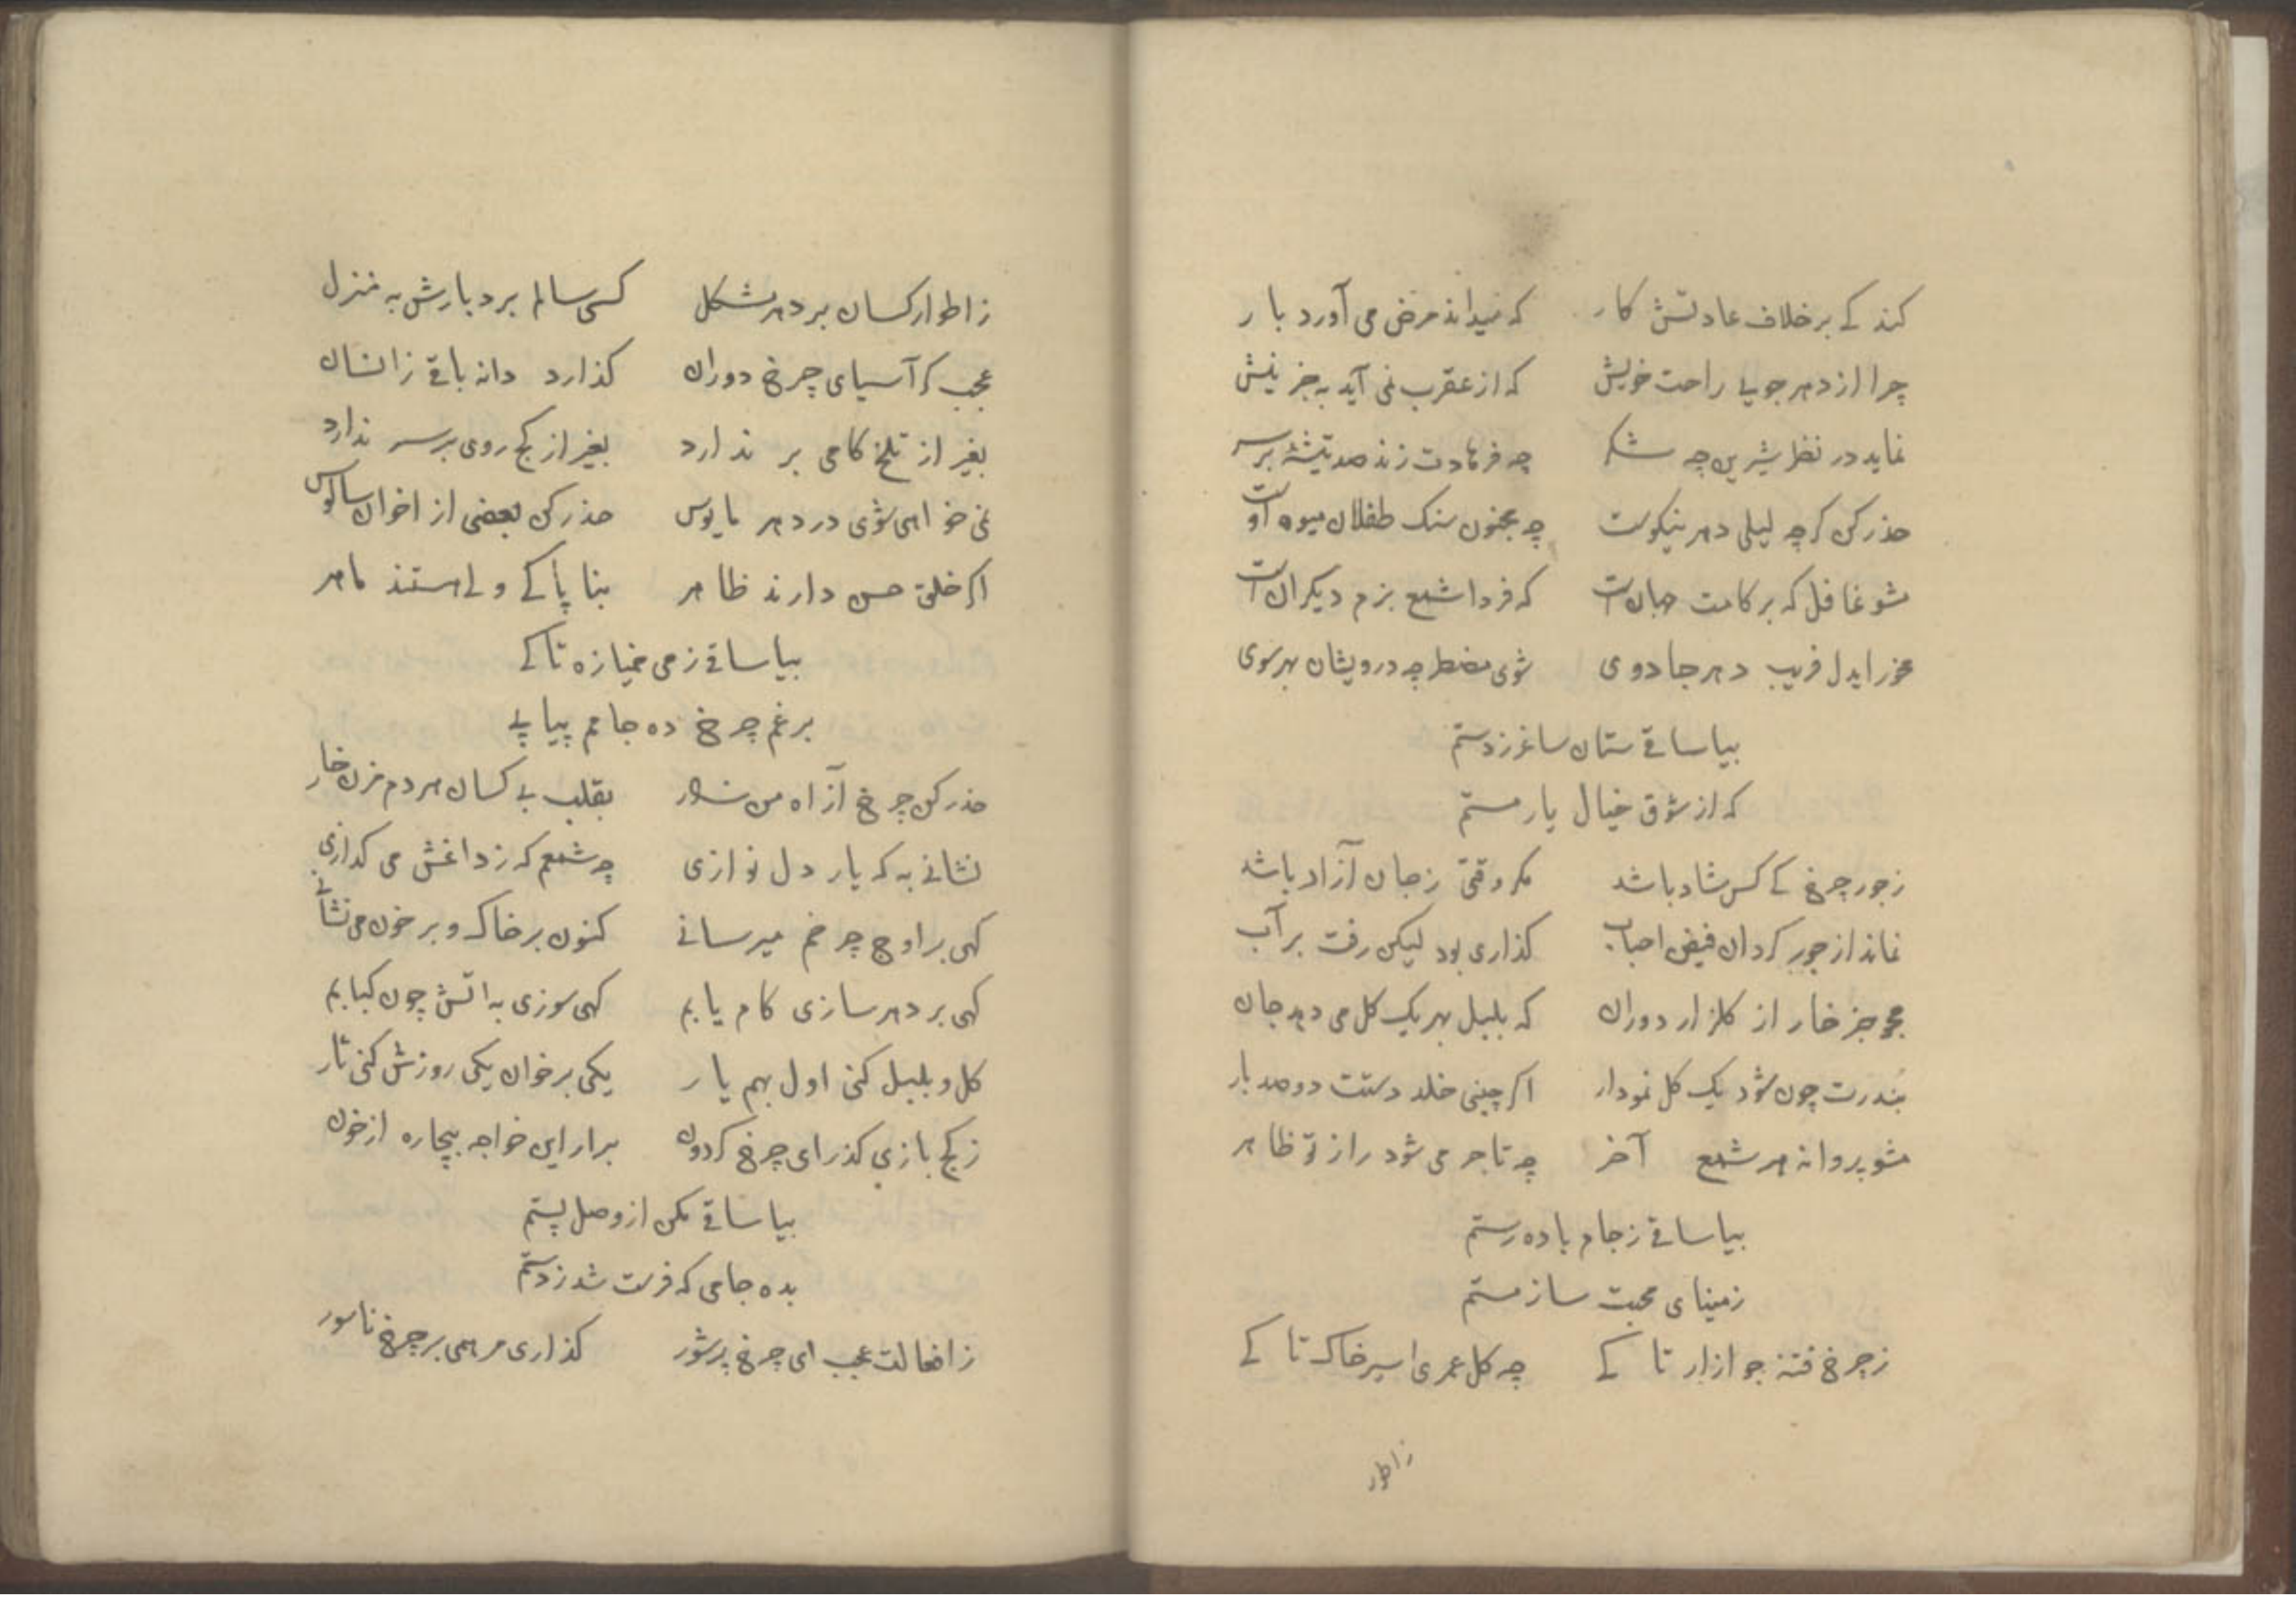 کند کے برخلاف عادتش کار   که نیداند مرض می آورد بار
چرا از دهر جویے راحت خویش   که از عقرب نمی آید بجز نیش
نماید در نظر شیرین چه شکر   چه فرهادت زند صد تیشهٔ بر سر
حذر کن کرچه لیلی دهر نیکوست   چه مجنون سنک طفلان میوه اوست
مشو غافل که بر کامت جهان است   که فردا شمع بزم دیکران است
مخور ایدل فریب دهر جادوی   شوی مضطر چه درویشان بهر سوی
بیا ساقے ستان ساغر ز دستم
که از شوق خیال یار مستم
ز جور چرخ کے کس شاد باشد   مکر وقتی ز جان آزاد باشد
نماند از جور کردان فیض احباب   کذاری بود لیکن رفت بر آب
مجو جز خار از کلزار دوران   که بلبل بهر یک کل می دهد جان
بندرت چون شود یک کل نمودار   اکر چینی خلد دستت دو صد بار
مشو پروانه هر شمع آخر   چه تاجر می شود راز تو ظاهر
بیا ساقے ز جام باده رستم
ز مینای محبت ساز مستم
ز چرخ فتنه جو ازار تا کے   چه کل عمری اسیر خاک تا کے
ز اطوار
ز اطوار کسان بر دهر مشکل   کسی سالم برد بارش به منزل
عجب کر آسیای چرخ دوران   کذارد دانه باقے ز انسان
بغیر از تلخ کامی بر ندارد   بغیر از کج روی بر سر ندارد
نمی خواهی شوی در دهر مایوس   حذر کن بعضی از اخوان سالوس
اکر خلق حسن دارند ظاهر   بناپاکے ولے هستند ماهر
بیا ساقے ز می خمیازه تا کے
برغم چرخ ده جامم پیاپے
حذر کن چرخ از آه من زار   بقلب بے کسان هر دم مزن خار
نشانے به که یار دل نوازی   چه شمعم که ز داغش می کدازی
کهی بر اوج چرخم میرسانے   کنون بر خاک و بر خون می نشانے
کهی بر دهر سازی کام یابم   کهی سوزی به اتش چون کبابم
کل و بلبل کنی اول بهم یار   یکی بر خوان یکی روزش کنی تار
ز کج بازی کذر ای چرخ کردون   برار این خواجه بیچاره از خون
بیا ساقے مکن از وصل پستم
بده جامی که فرست شد ز دستم
ز افعالت عجب ای چرخ پر شور   کذاری مرهمی بر چرخ ناسور